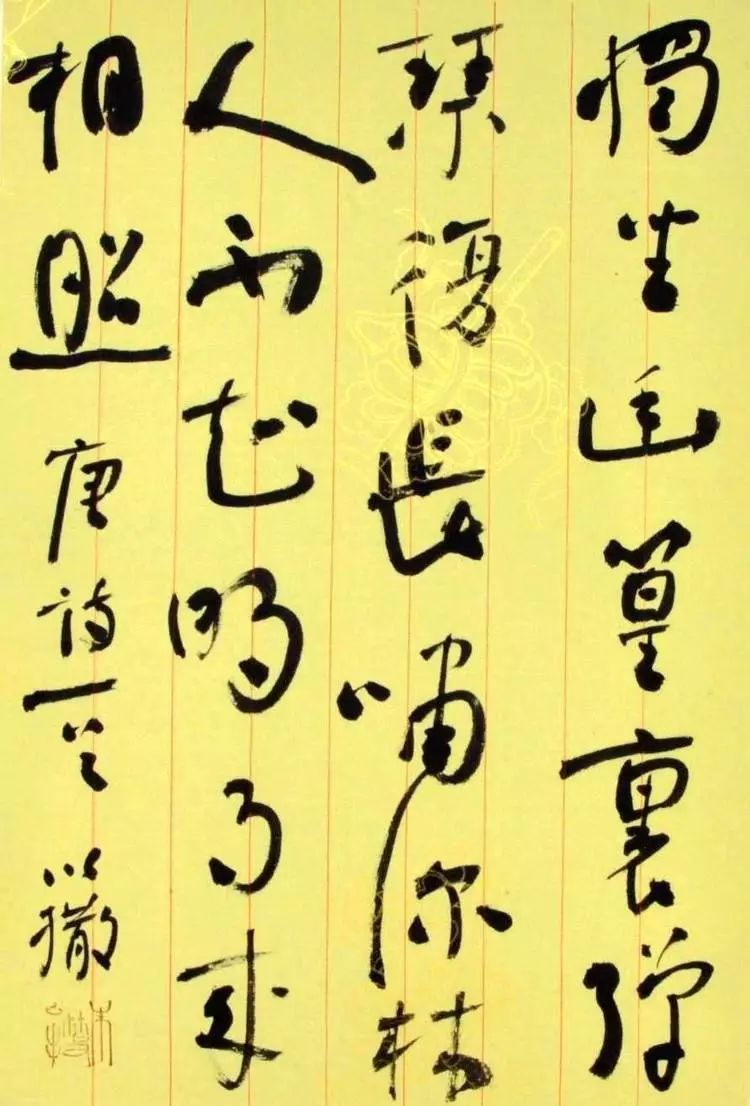 獨坐幽篁裏彈
琴復長嘯深林
人不知明月來
相照唐詩一首以撒